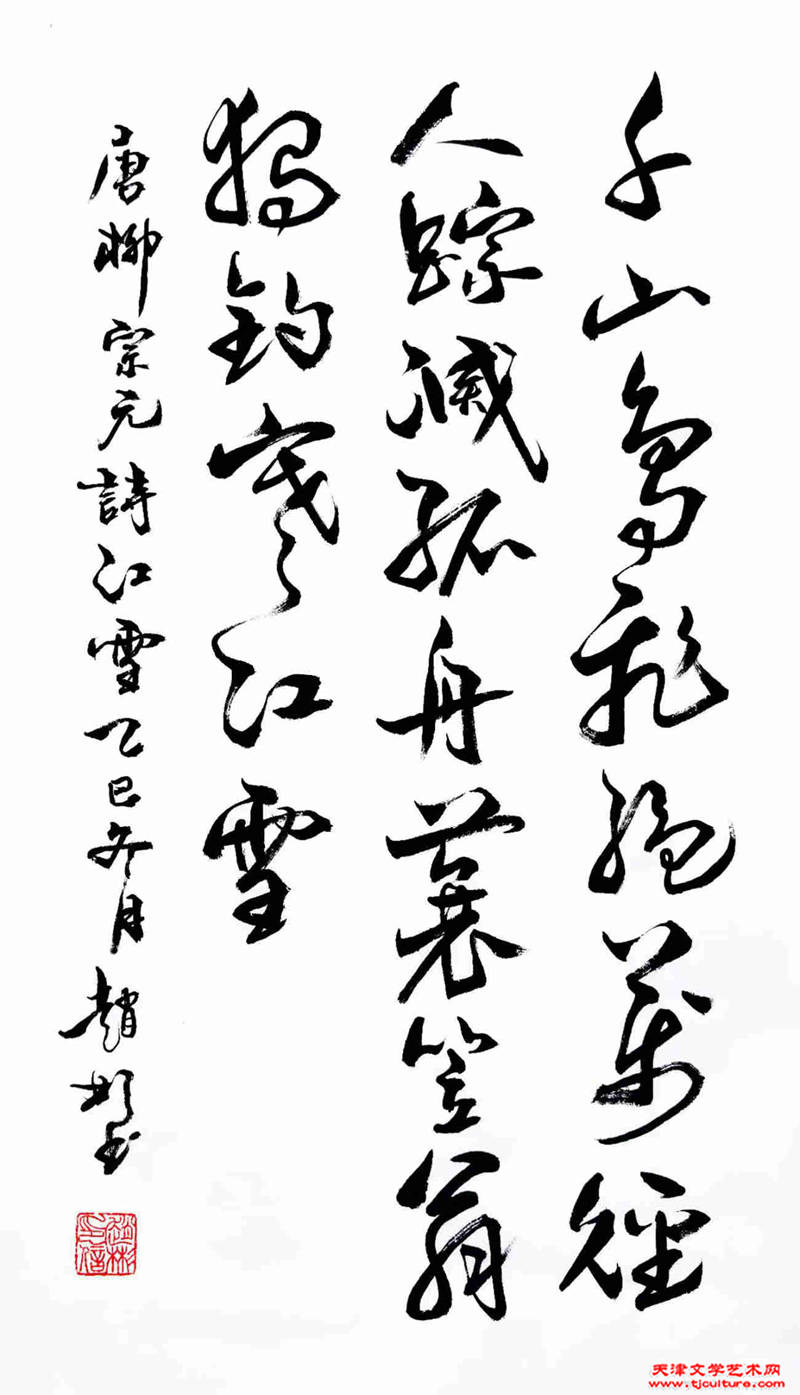 千山鳥飛絕萬徑
人踪滅孤舟蓑笠翁
獨釣寒江雪
唐柳宗元詩江雪乙巳冬月趙彬书
趙彬印信
天津文学艺术网
www.tjculture.com